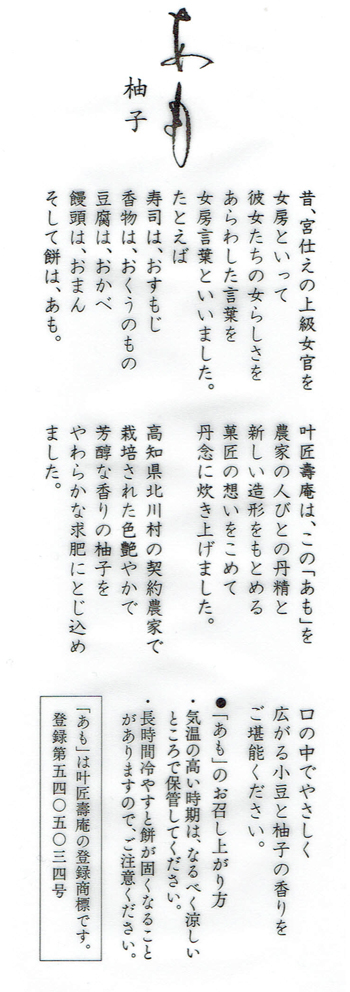 あも
柚子
昔、宮仕えの上級女官を
女房といって
彼女たちの女らしさを
あらわした言葉を
女房言葉といいました。
たとえば
寿司は、おすもじ
香物は、おくうのもの
豆腐は、おかべ
饅頭は、おまん
そして餅は、あも。
叶匠壽庵は、この「あも」を
農家の人びとの丹精と
新しい造形をもとめる
菓匠の想いをこめて
丹念に炊き上げました。
高知県北川村の契約農家で
栽培された色艶やかで
芳醇な香りの柚子を
やわらかな求肥にとじ込め
ました。
口の中でやさしく
広がる小豆と柚子の香りを
ご堪能ください。
●「あも」のお召し上がり方
・気温の高い時期は、なるべく涼しい
ところで保管してください。
・長時間冷やすと餅が固くなること
がありますので、ご注意ください。
「あも」は叶匠壽庵の登録商標です。
登録第五四〇五〇三四号